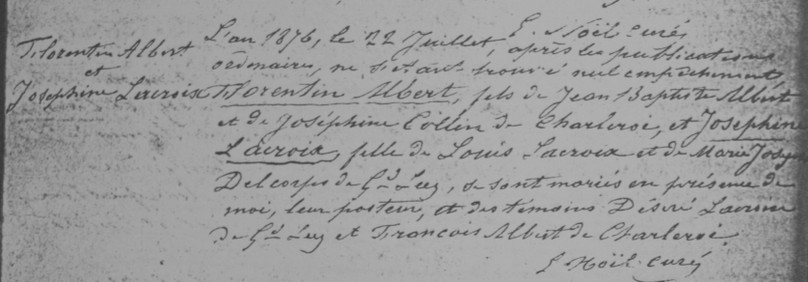 E. Noël curé
Florentin Albert
et
Joséphine Lacroix
L'an 1876, le 22 Juillet, après les publications
ordinaires, ne s'étant trouvé nul empêchement
Florentin Albert, fils de Jean Baptiste Albert
et de Joséphine Collin de Charleroi, et Joséphine
Lacroix, fille de Louis Lacroix et de Marie Josep
Delcorps de Gd Leez, se sont mariés en présence de
moi, leur pasteur, et des témoins Désiré Lacroix
de Gd Leez et François Albert de Charleroi.
E. Noël curé